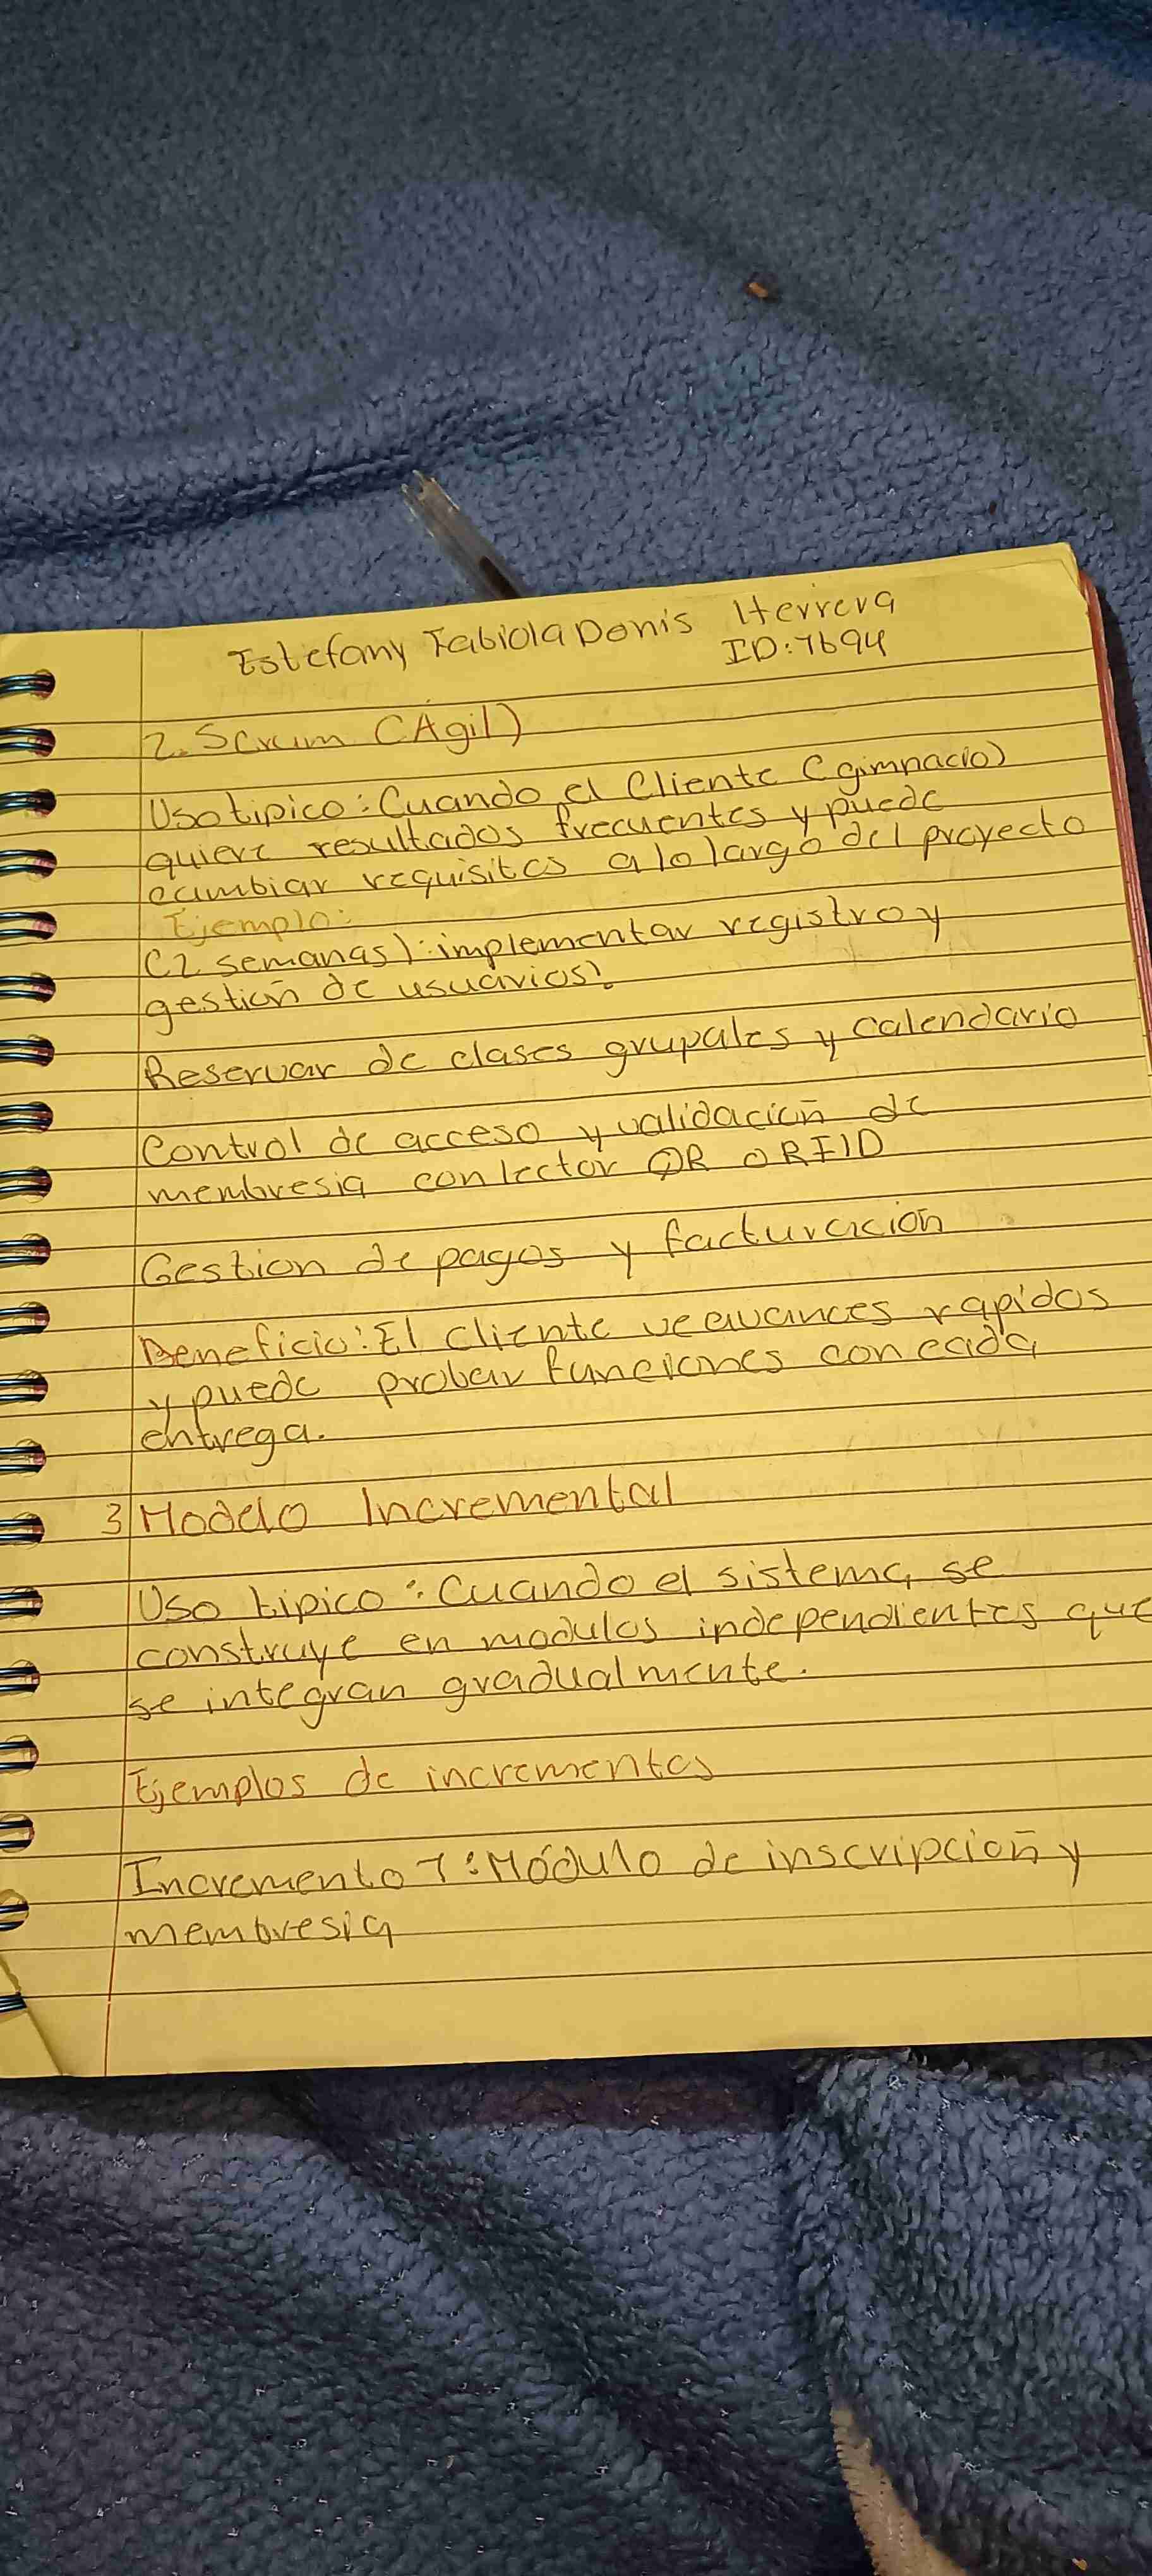 Estefany Fabiola Donis Herrera
ID:7694
2. Scrum (Ágil)
Uso tipico: Cuando el Cliente (gimnacio)
quiere resultados frecuentes y puede
cambiar requisitos a lo largo del proyecto
Ejemplo:
(2 semanas): implementar registro y
gestión de usuarios.
Reservar de clases grupales y calendario
Control de acceso y validación de
membresia con lector QR o RFID
Gestion de pagos y facturación
Beneficio: El cliente ve avances rapidos
y puede probar funciones con cada
entrega.
3 Modelo Incremental
Uso tipico: Cuando el sistema se
construye en modulos independientes que
se integran gradualmente.
Ejemplos de incrementos
Incremento 1: Módulo de inscripción y
membresia